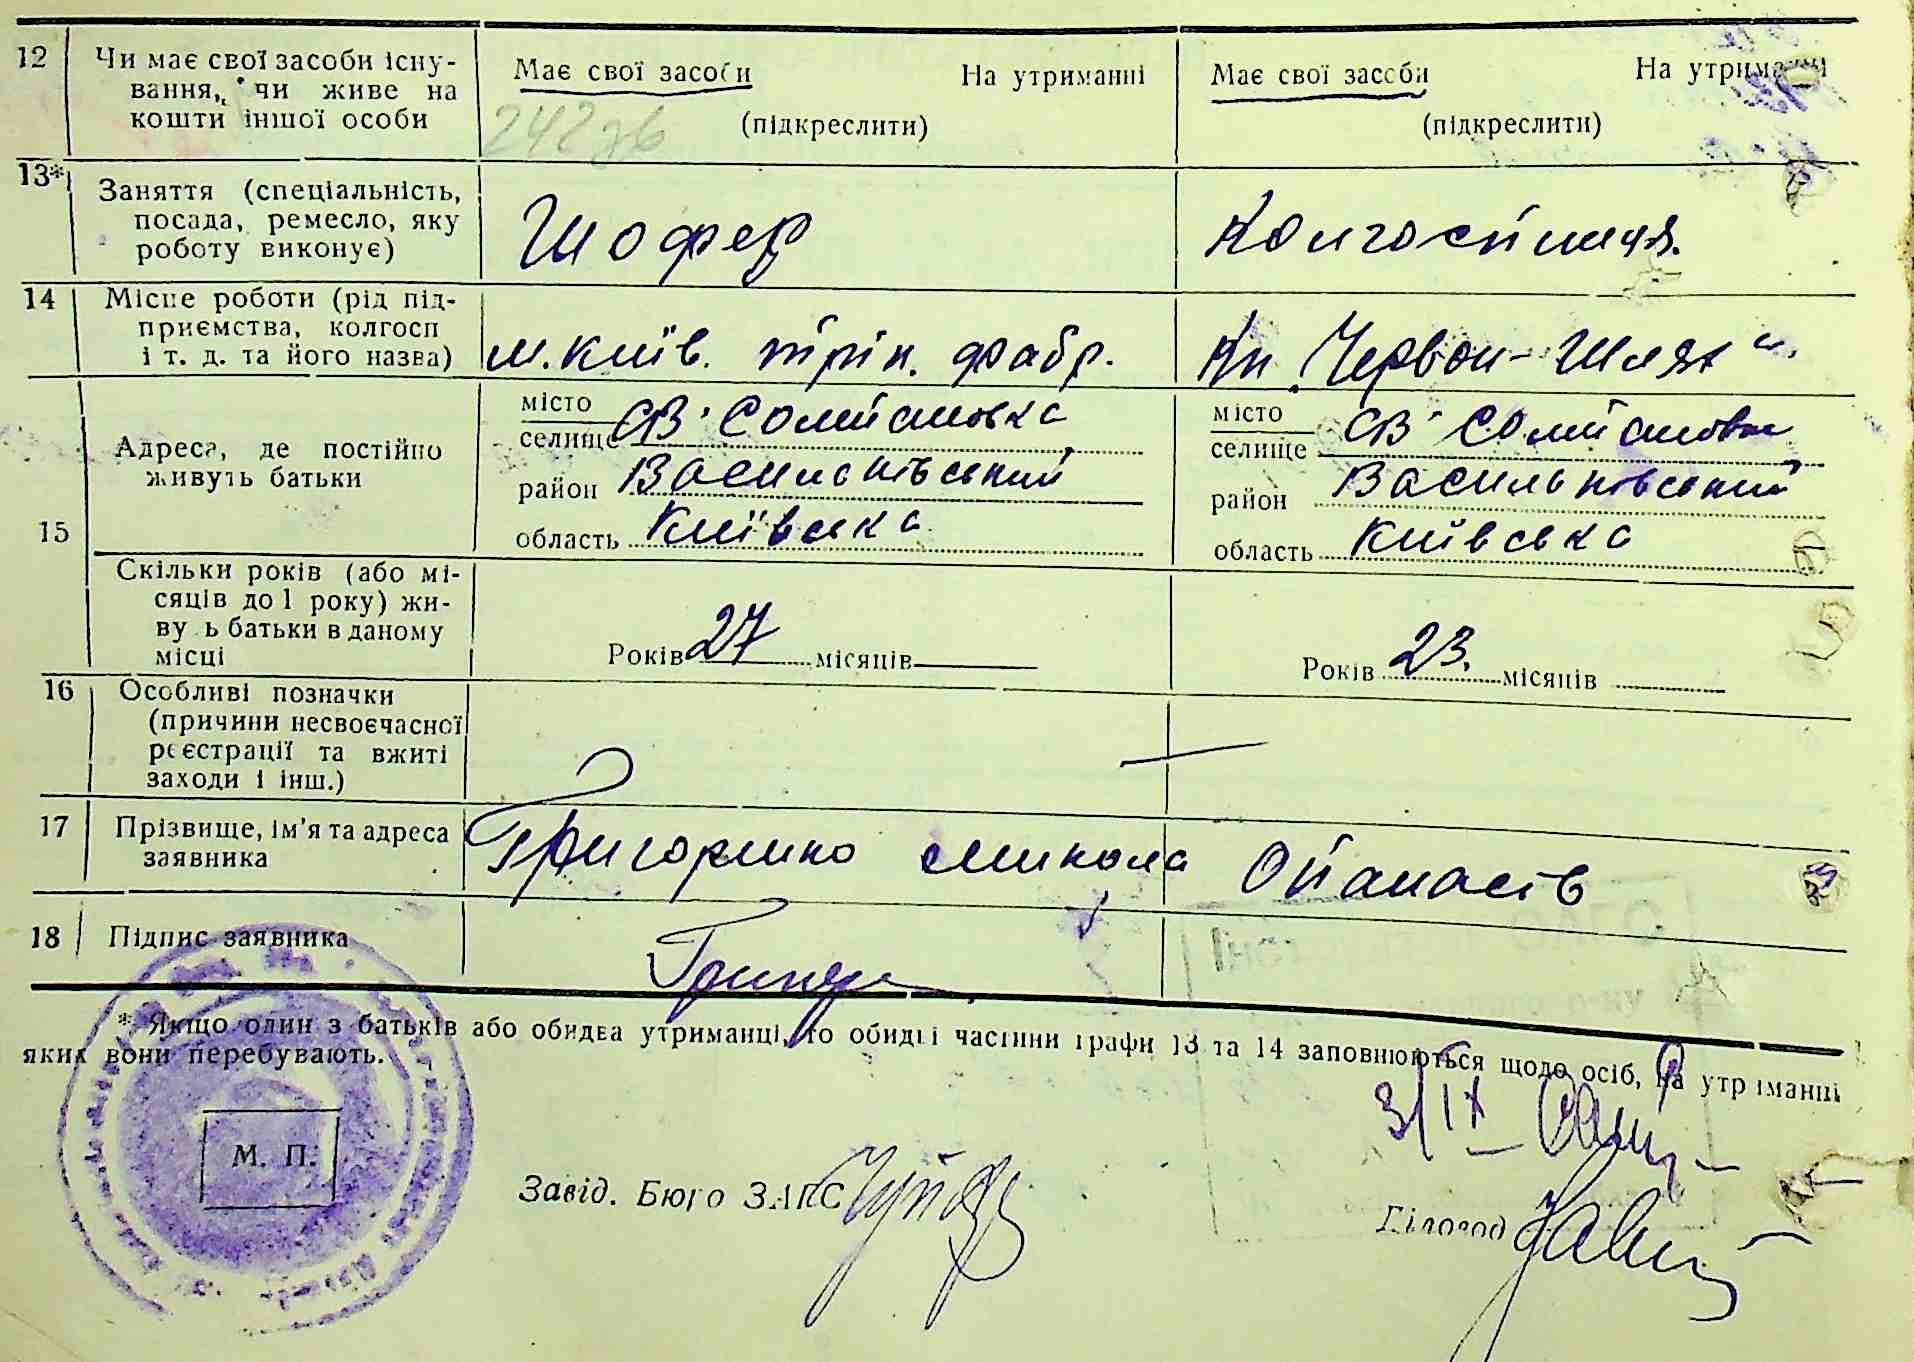 12 Чи має свої засоби існу-
вання, чи живе на
кошти іншої особи
Має свої засоби На утриманні
(підкреслити)
Має свої засоби На утриманні
(підкреслити)
13* Заняття (спеціальність,
посада, ремесло, яку
роботу виконує)
Шофер
Колгоспниця.
14 Місце роботи (рід під-
приємства, колгосп
і т. д. та його назва)
м. Київ. трік. фабр.
Кп "Червон-Шлях".
15 Адреса, де постійно
живуть батьки
місто
селище
район Васильківський
область Київська
місто
селище
район Васильківський
область Київська
Скільки років (або мі-
сяців до 1 року) жи-
ву ь батьки в даному
місці
Років 27 місяців
Років 23. місяців
16 Особливі позначки
(причини несвоєчасної
реєстрації та вжиті
заходи і інш.)
17 Прізвище, ім'я та адреса
заявника
Микола
18 Підпис заявника
* Якщо один з батьків або обидва утриманці, то обидві частини графи 13 та 14 заповнюються щодо осіб, на утриманні
яких вони перебувають.
3/IX
М. П.
Завід. Бюро ЗАГС
Діловод